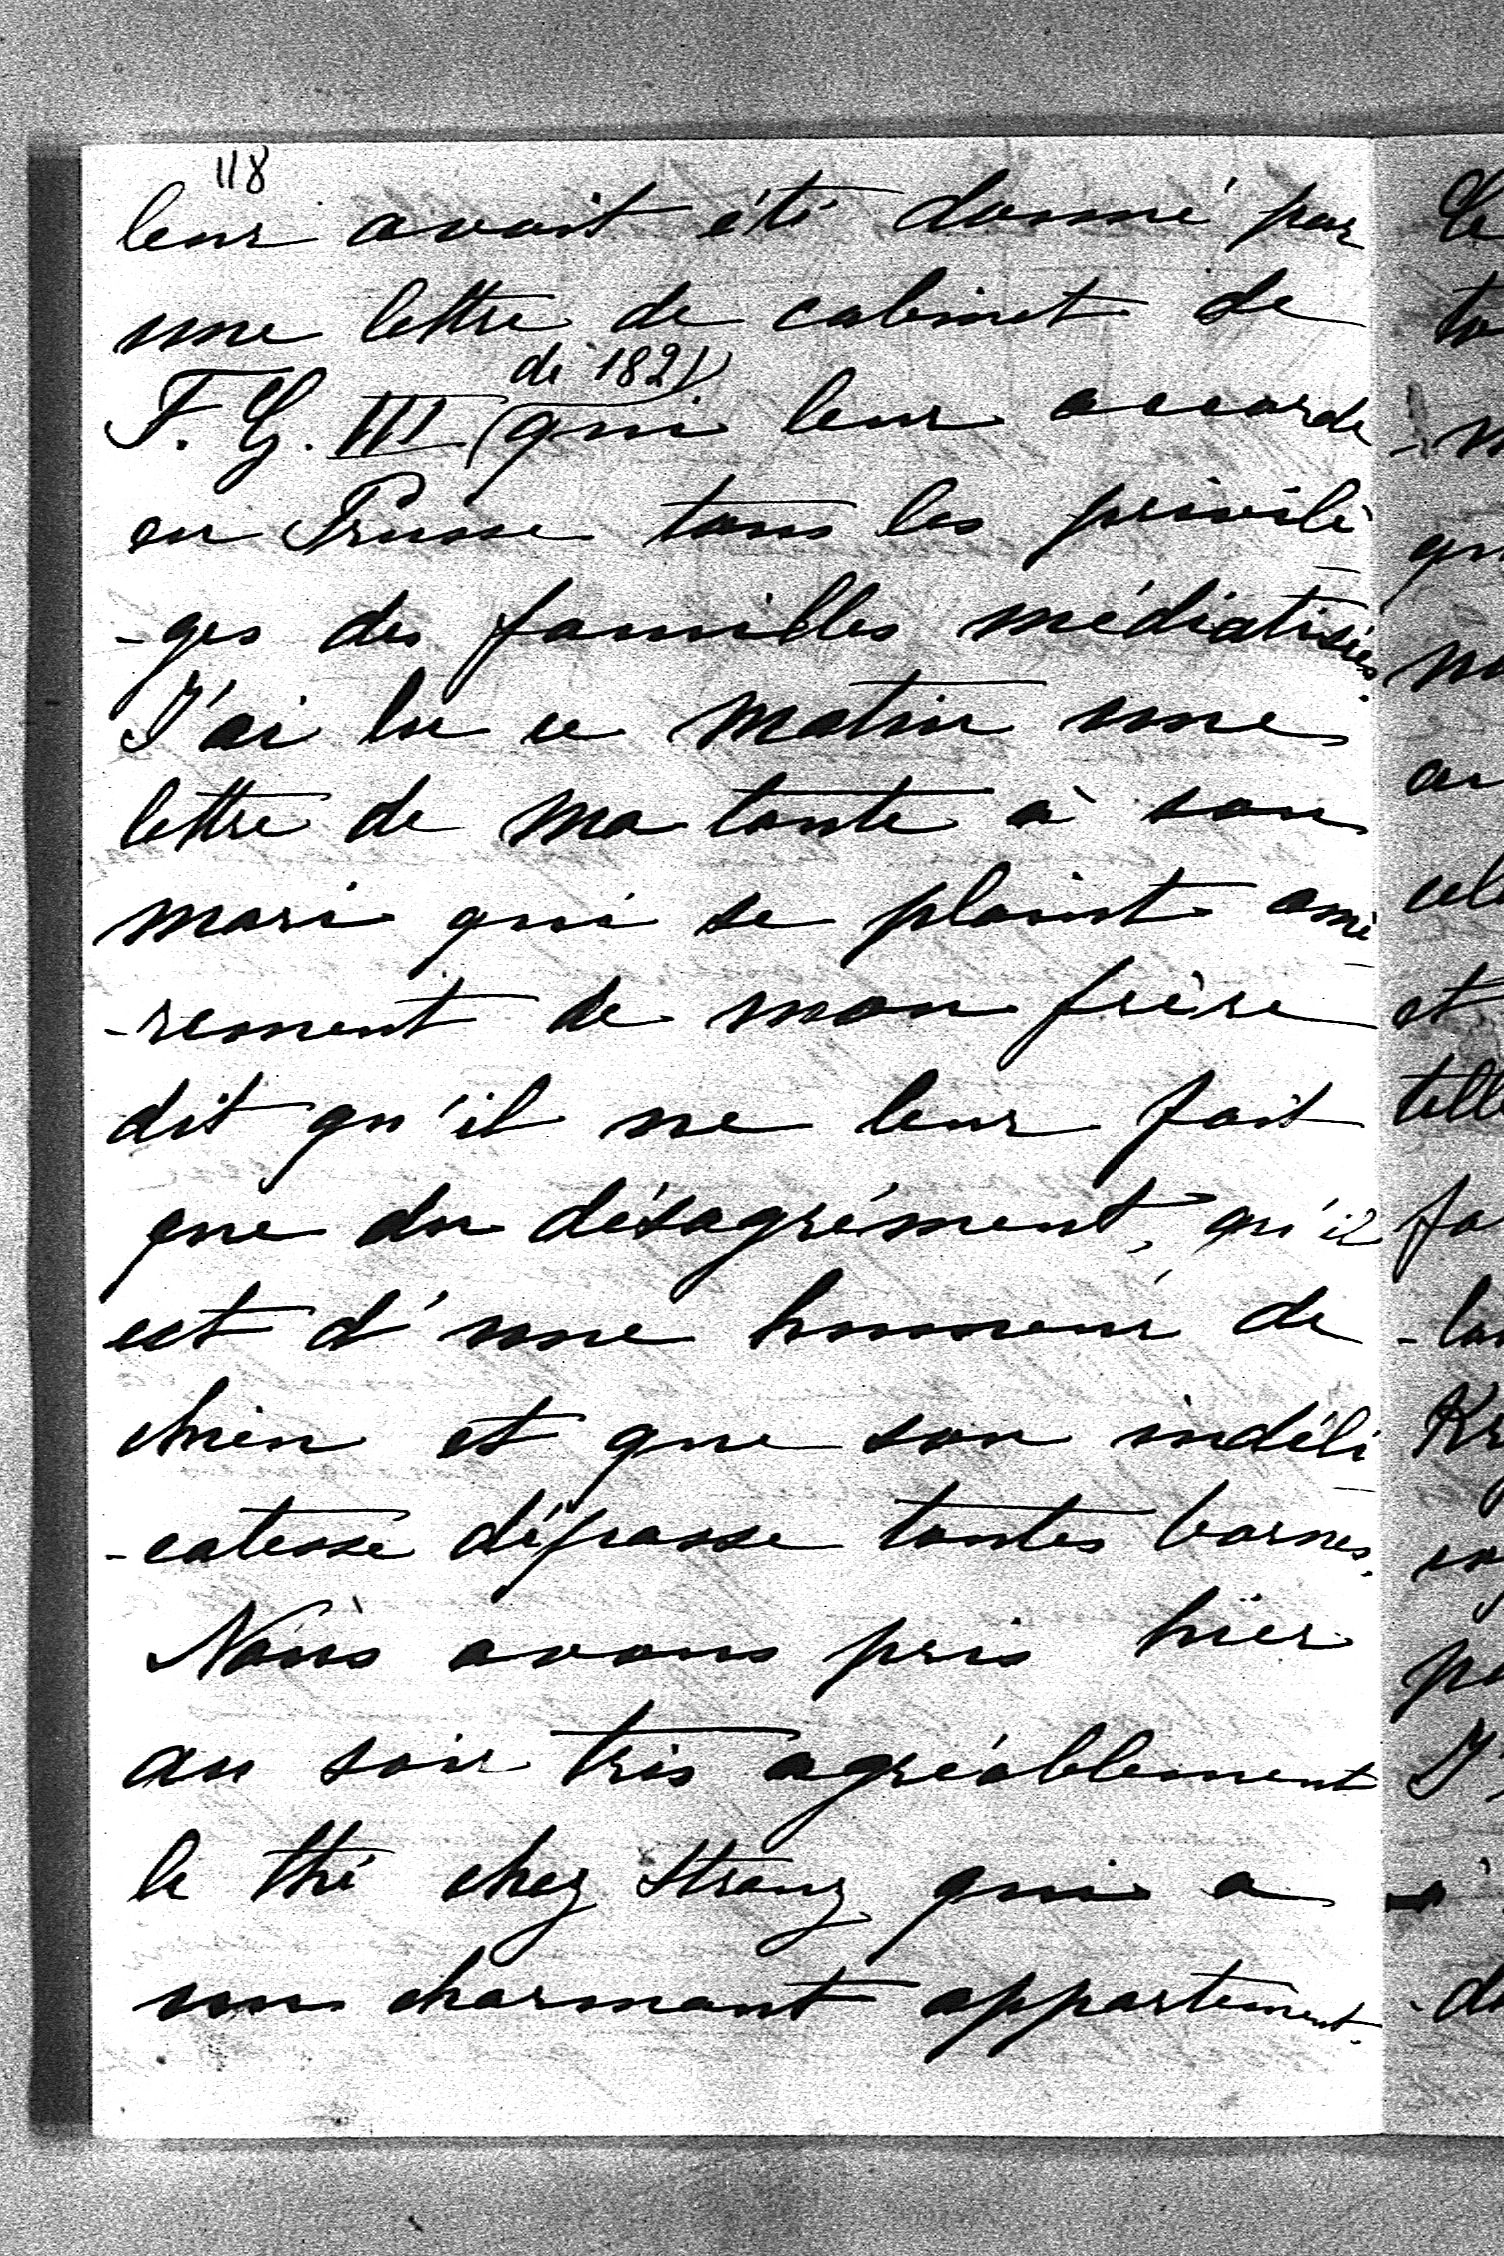 118
leur avait été donné par
une lettre de cabinet de
de 1821)
F. G. III (qui leur accorde
en Prusse tous les privilè
-ges des familles médiatisées.
J'ai lu ce matin une
lettre de ma tante à son
mari qui se plaint amè
-rement de mon frère
dit qu'il ne leur fait
que du désagrément, qu'il
est d'une humeur de
chien et que son indéli
-catesse dépasse toutes bornes.
Nous avons pris hier
au soir très agréablement
le thé chez Stranz qui a
un charmant appartement.